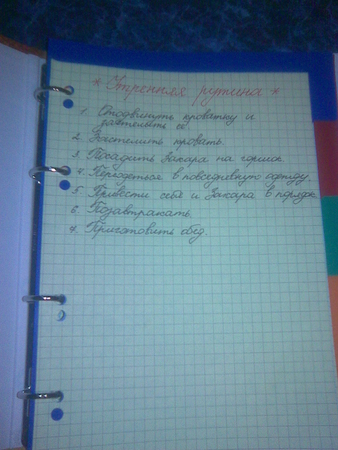 * Утренняя рутина *
1. Отодвинуть кроватку и
застелить её.
2. Застелить кровать.
3. Посадить Захара на горшок.
4. Переодеться в повседневную одежду.
5. Привести себя и Захара в порядок.
6. Позавтракать.
7. Приготовить обед.